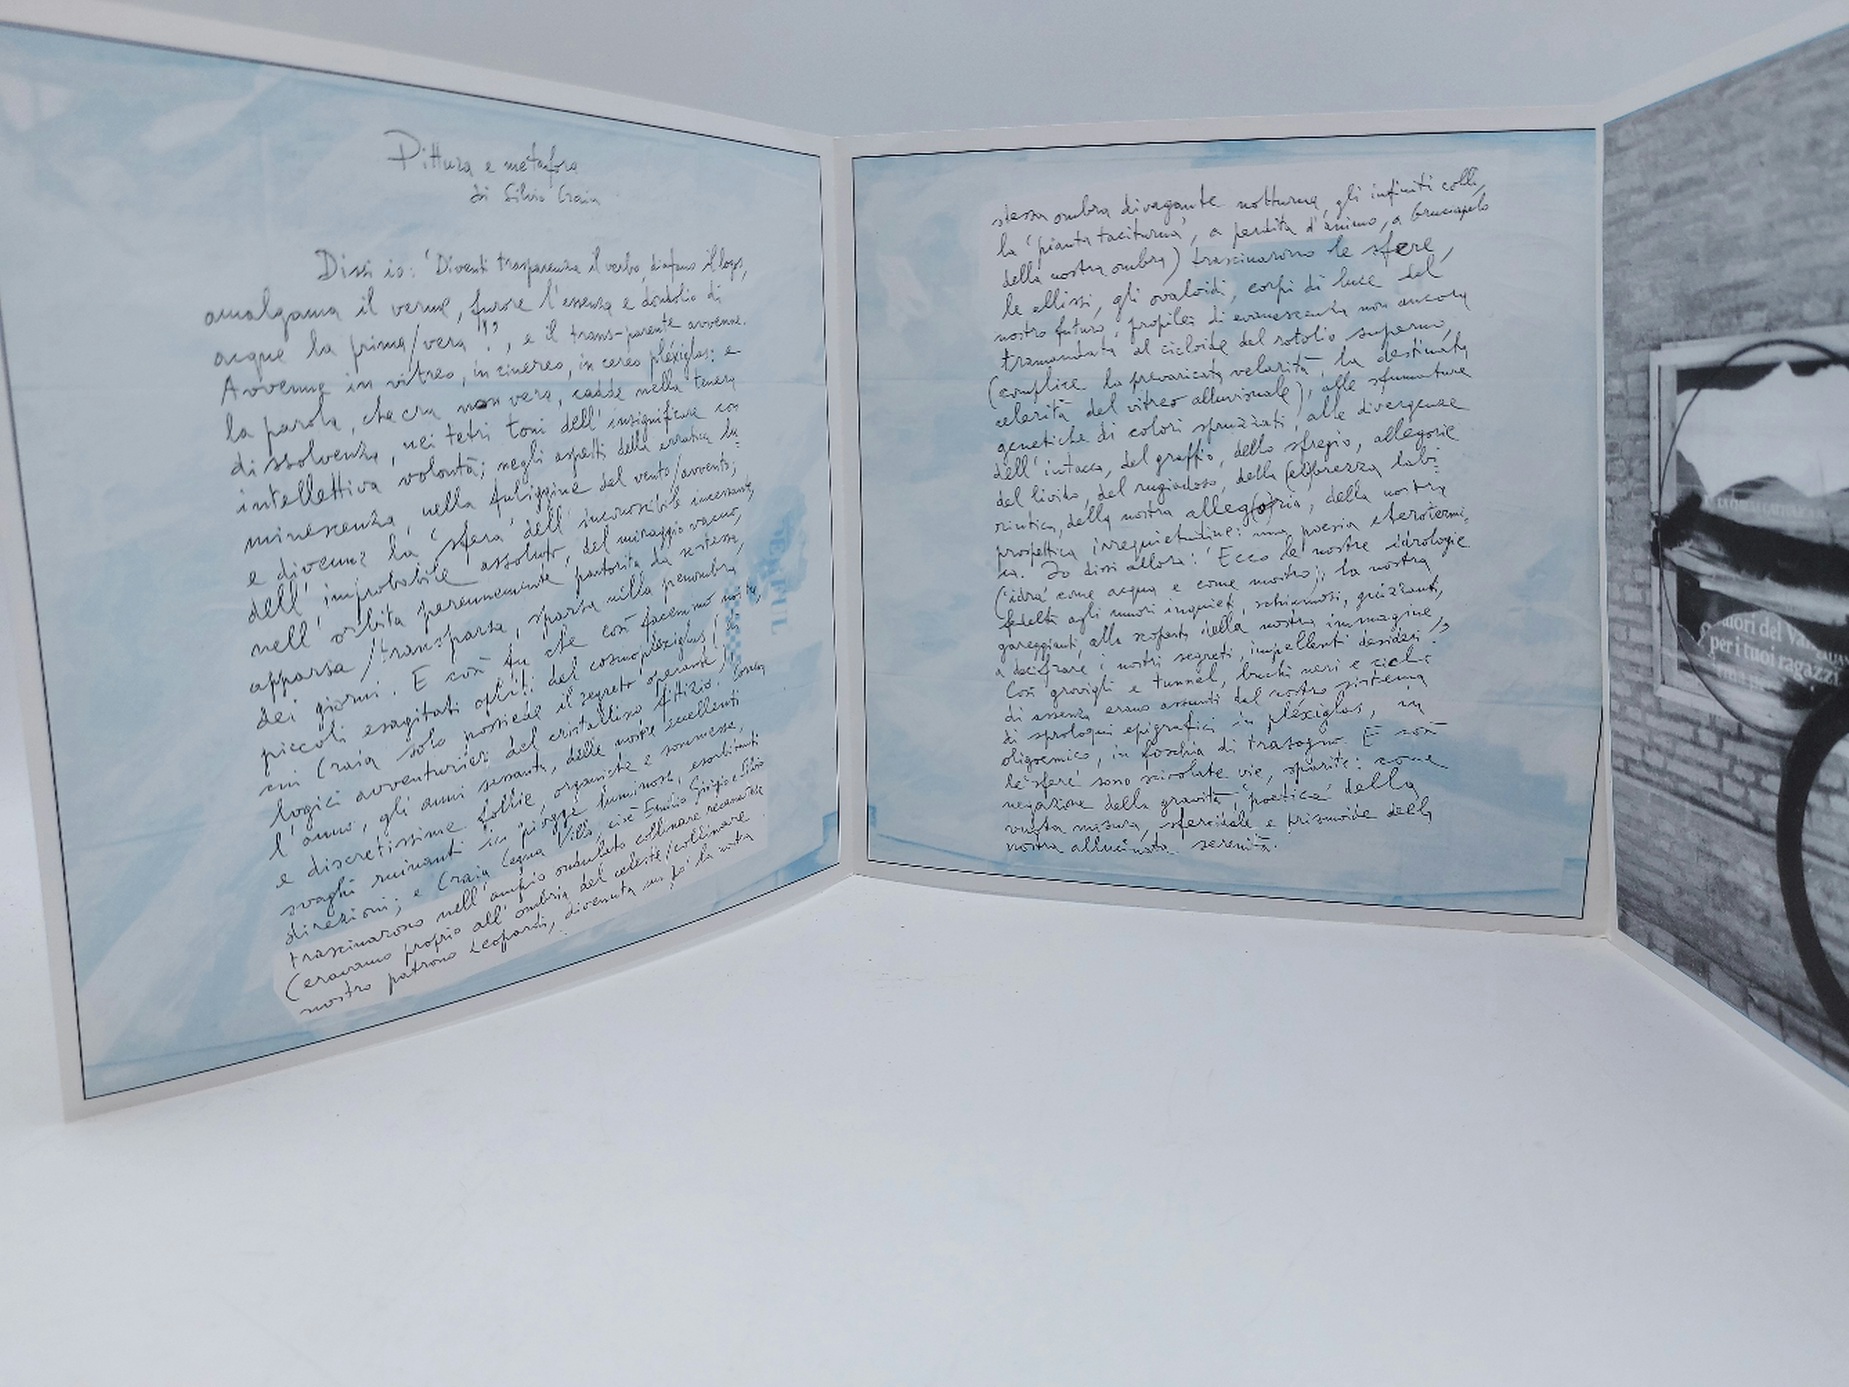 Pittura e metafora
di Silvio Craia
Dissi io: 'Diventi trasparenza il verbo, diafano il logos,
amalgama il verme, furore l'essenza e dondolio di
acque la prima/vera'', e il trans-parente avvenne.
Avvenne in vitreo, in cinereo, in cereo plèxiglas: e
la parola, che era non vera, cadde nella tenera
dissolvenza, nei tetri toni dell'insignificare con
intellettiva volontà; negli aspetti della erratica lu-
minescenza, nella fuliggine del vento/avvento;
e divenne la 'sfera' dell'inconoscibile incessante,
dell'improbabile assoluto, del miraggio vacuo,
nell'orbita perennemente partorita da se stessa,
apparsa/transparsa, sparsa nella penombra
dei giorni. E così fu che così facemmo noi,
piccoli esagitati del cosmoplèxiglas (di
cui Craia solo possiede il segreto operante!),
logici avventurieri del cristallino fittizio. Correva
l'anno, gli anni sessanta, delle morie eccellenti
e discretissime follie, organiche e sommesse,
svaghi ruinanti in piogge luminose, esorbitanti
direzioni; e Craia Cegna Villa, cioè Emilio Giorgio e Silvio
trascinarono nell'ampio ondulato collinare recanatese
(eravamo proprio all'ombra del celeste/collinare
nostro patrono Leopardi, divenuta un po' la nota
stessa ombra divagante notturna, gli infiniti colli,
la 'pianta taciturna', a perdita d'animo, a bruciapelo
della nostra ombra) trascinarono le sfere,
le ellissi, gli ovaloidi, corpi di luce del
nostro futuro, profilès di evanescenza non ancora
tramandata al cicloide del rotolio supremo,
(complice la prevaricata velarità, la destinata
celerità del vitreo alluvionale), alle sfumature
genetiche di colori spruzzati, alle divergenze
dell'intacco, del graffio, dello sfregio, allegorie
del livido, del rugiadoso, della (eb)brezza labi-
rintica, della nostra alleg(o)ria, della nostra
prospettica irrequietudine: una poesia eterotermi-
ca. Io dissi allora: 'Ecco le nostre idrologie
('idra' come acqua e come mostro); la nostra
fedeltà agli umori inquieti, schiumosi, guizzanti,
gareggianti, alla scoperta della nostra immagine,
a decifrare i nostri segreti, impellenti desideri'.
Così grovigli e tunnel, buchi neri e ciclo
di assenza erano assunti dal nostro sistema
di sproloqui epigrafici in plèxiglas, in
oligoemico, in foschia di trasogno. E così
le 'sfere' sono scivolate vie, sparite: come
negazione della gravità, 'poetica' della
vuota misura, sferoidale e prismoide della
nostra allucinata serenità.
per i tuoi ragazzi.